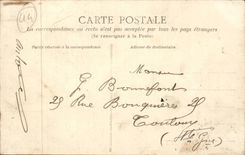 CARTE POSTALE
La correspondance au recto n'est pas acceptée par tous les pays étrangers
(Se renseigner à la Poste)
Partie réservée à la correspondance
Adresse du destinataire
Monsieur
Bonnefont
25 Rue Bouquières 25
Toulouse
(Hte Gne)